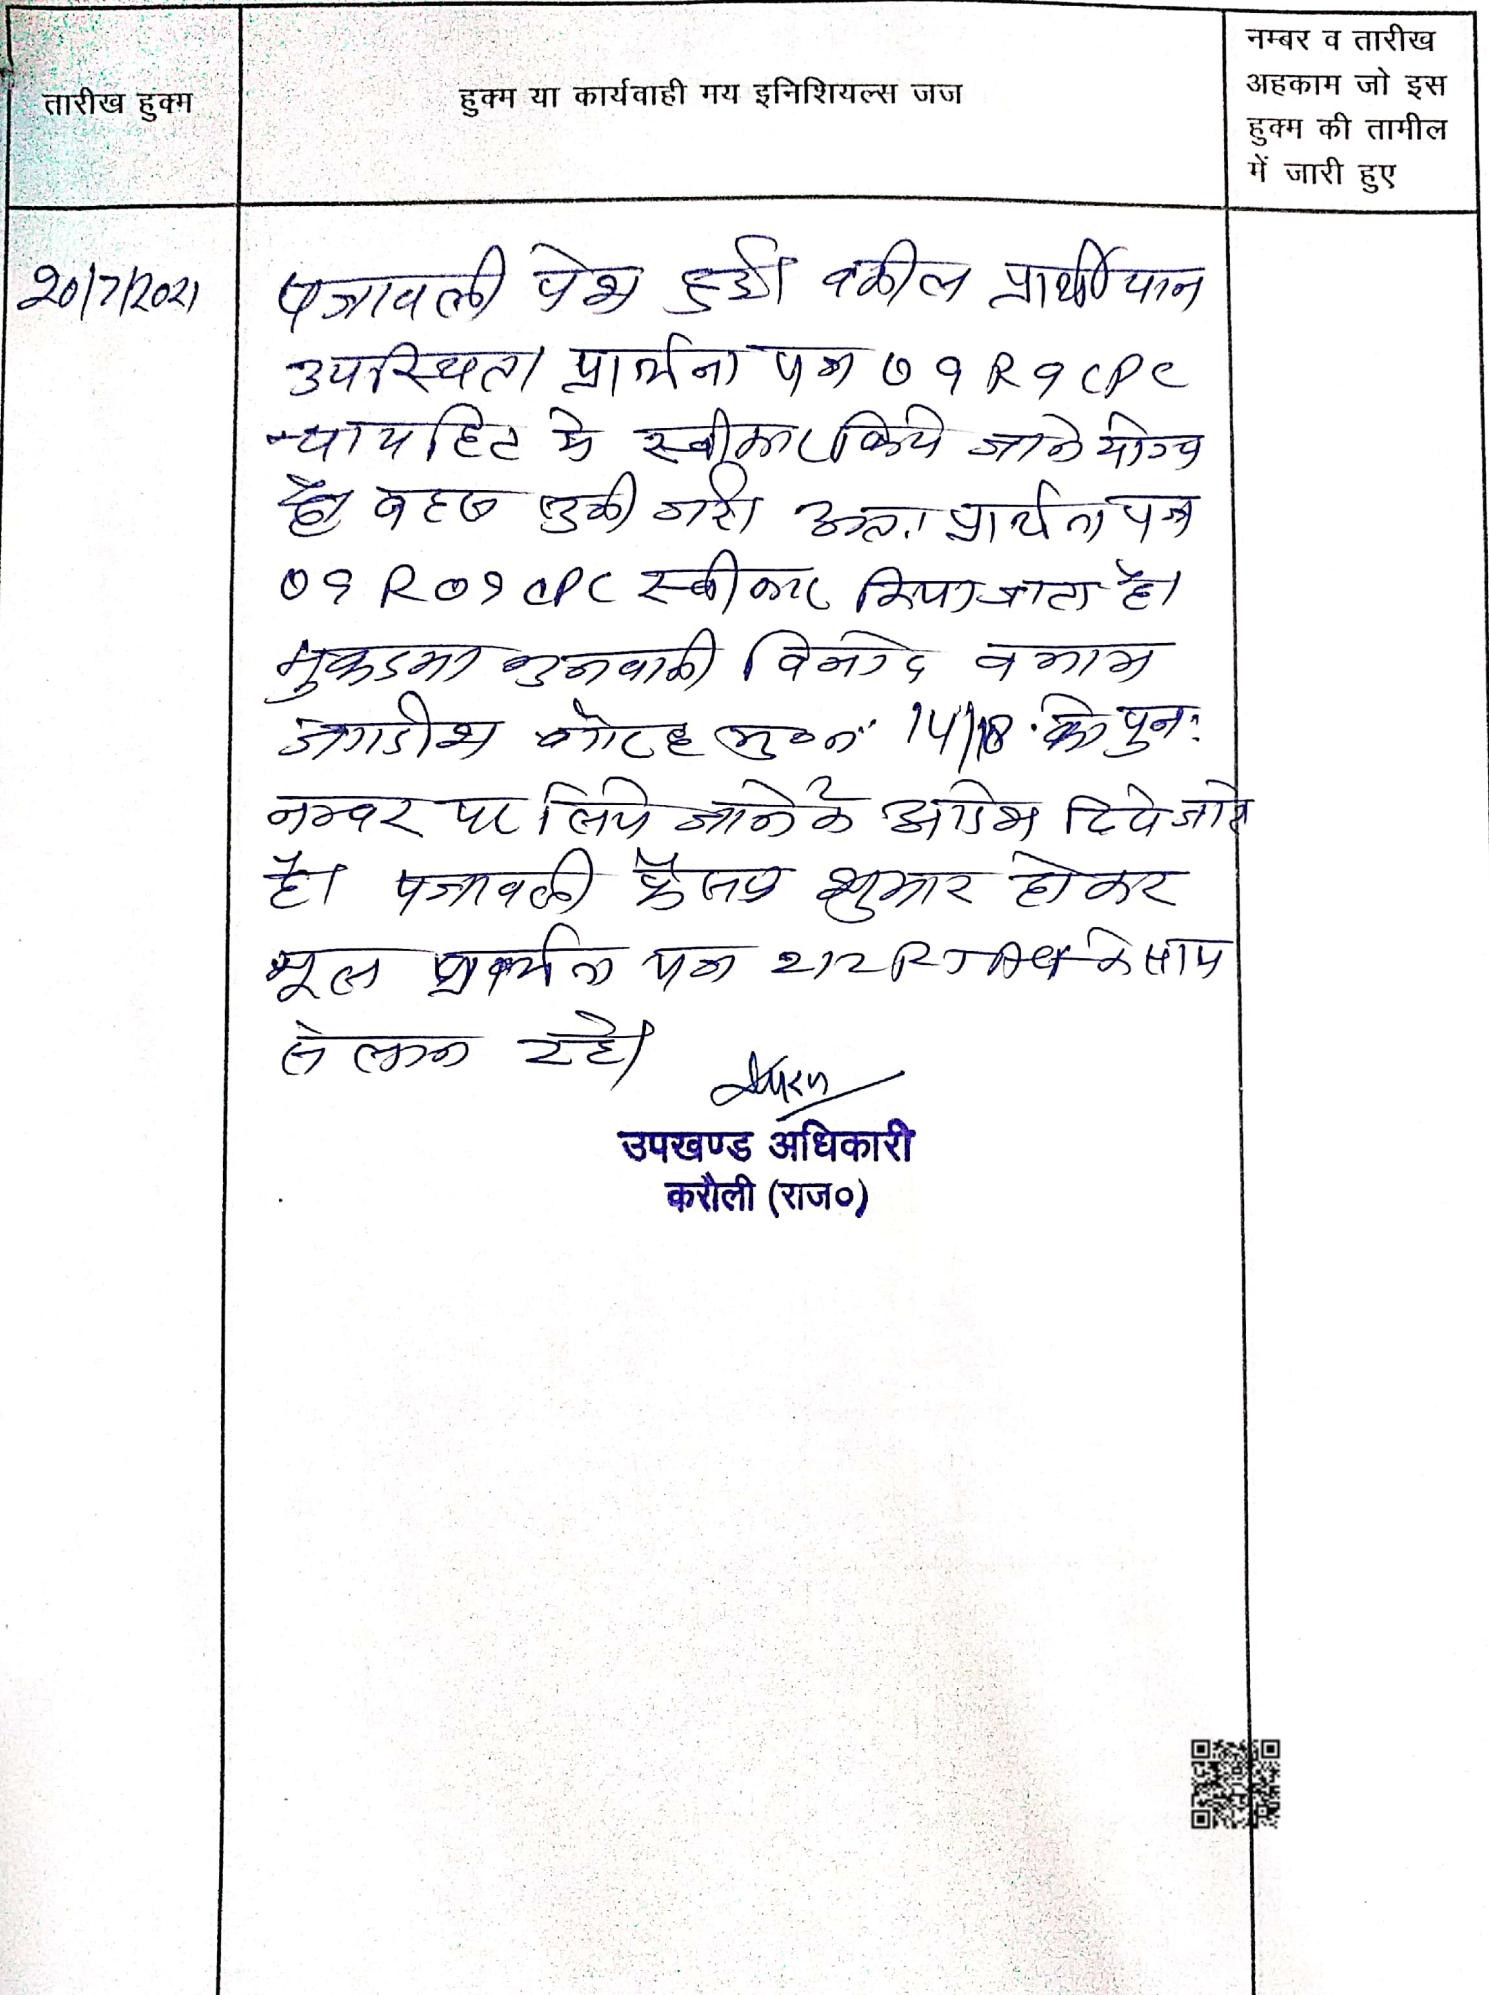 तारीख हुक्म
हुक्म या कार्यवाही मय इनिशियल्स जज
नम्बर व तारीख
अहकाम जो इस
हुक्म की तामील
में जारी हुए
20/7/2021
पत्रावली पेश हुई। वकील प्रार्थीयान
उपस्थित। प्रार्थना पत्र ०9 R 9 CPC
न्यायहित मे स्वीकार किये जाने योग्य
है। बहस सुनी गई। अतः प्रार्थना पत्र
०9 R ०9 CPC स्वीकार किया जाता है।
मुकदमा विनोद बनाम
जगदीश 14/18 को पुनः
नम्बर पर लिये जाने के आदेश दिये जाते
है। पत्रावली फैसल शुमार होकर
मूल प्रार्थना पत्र 212 R T Act के साथ
संलग्न रहे।
उपखण्ड अधिकारी
करौली (राज०)